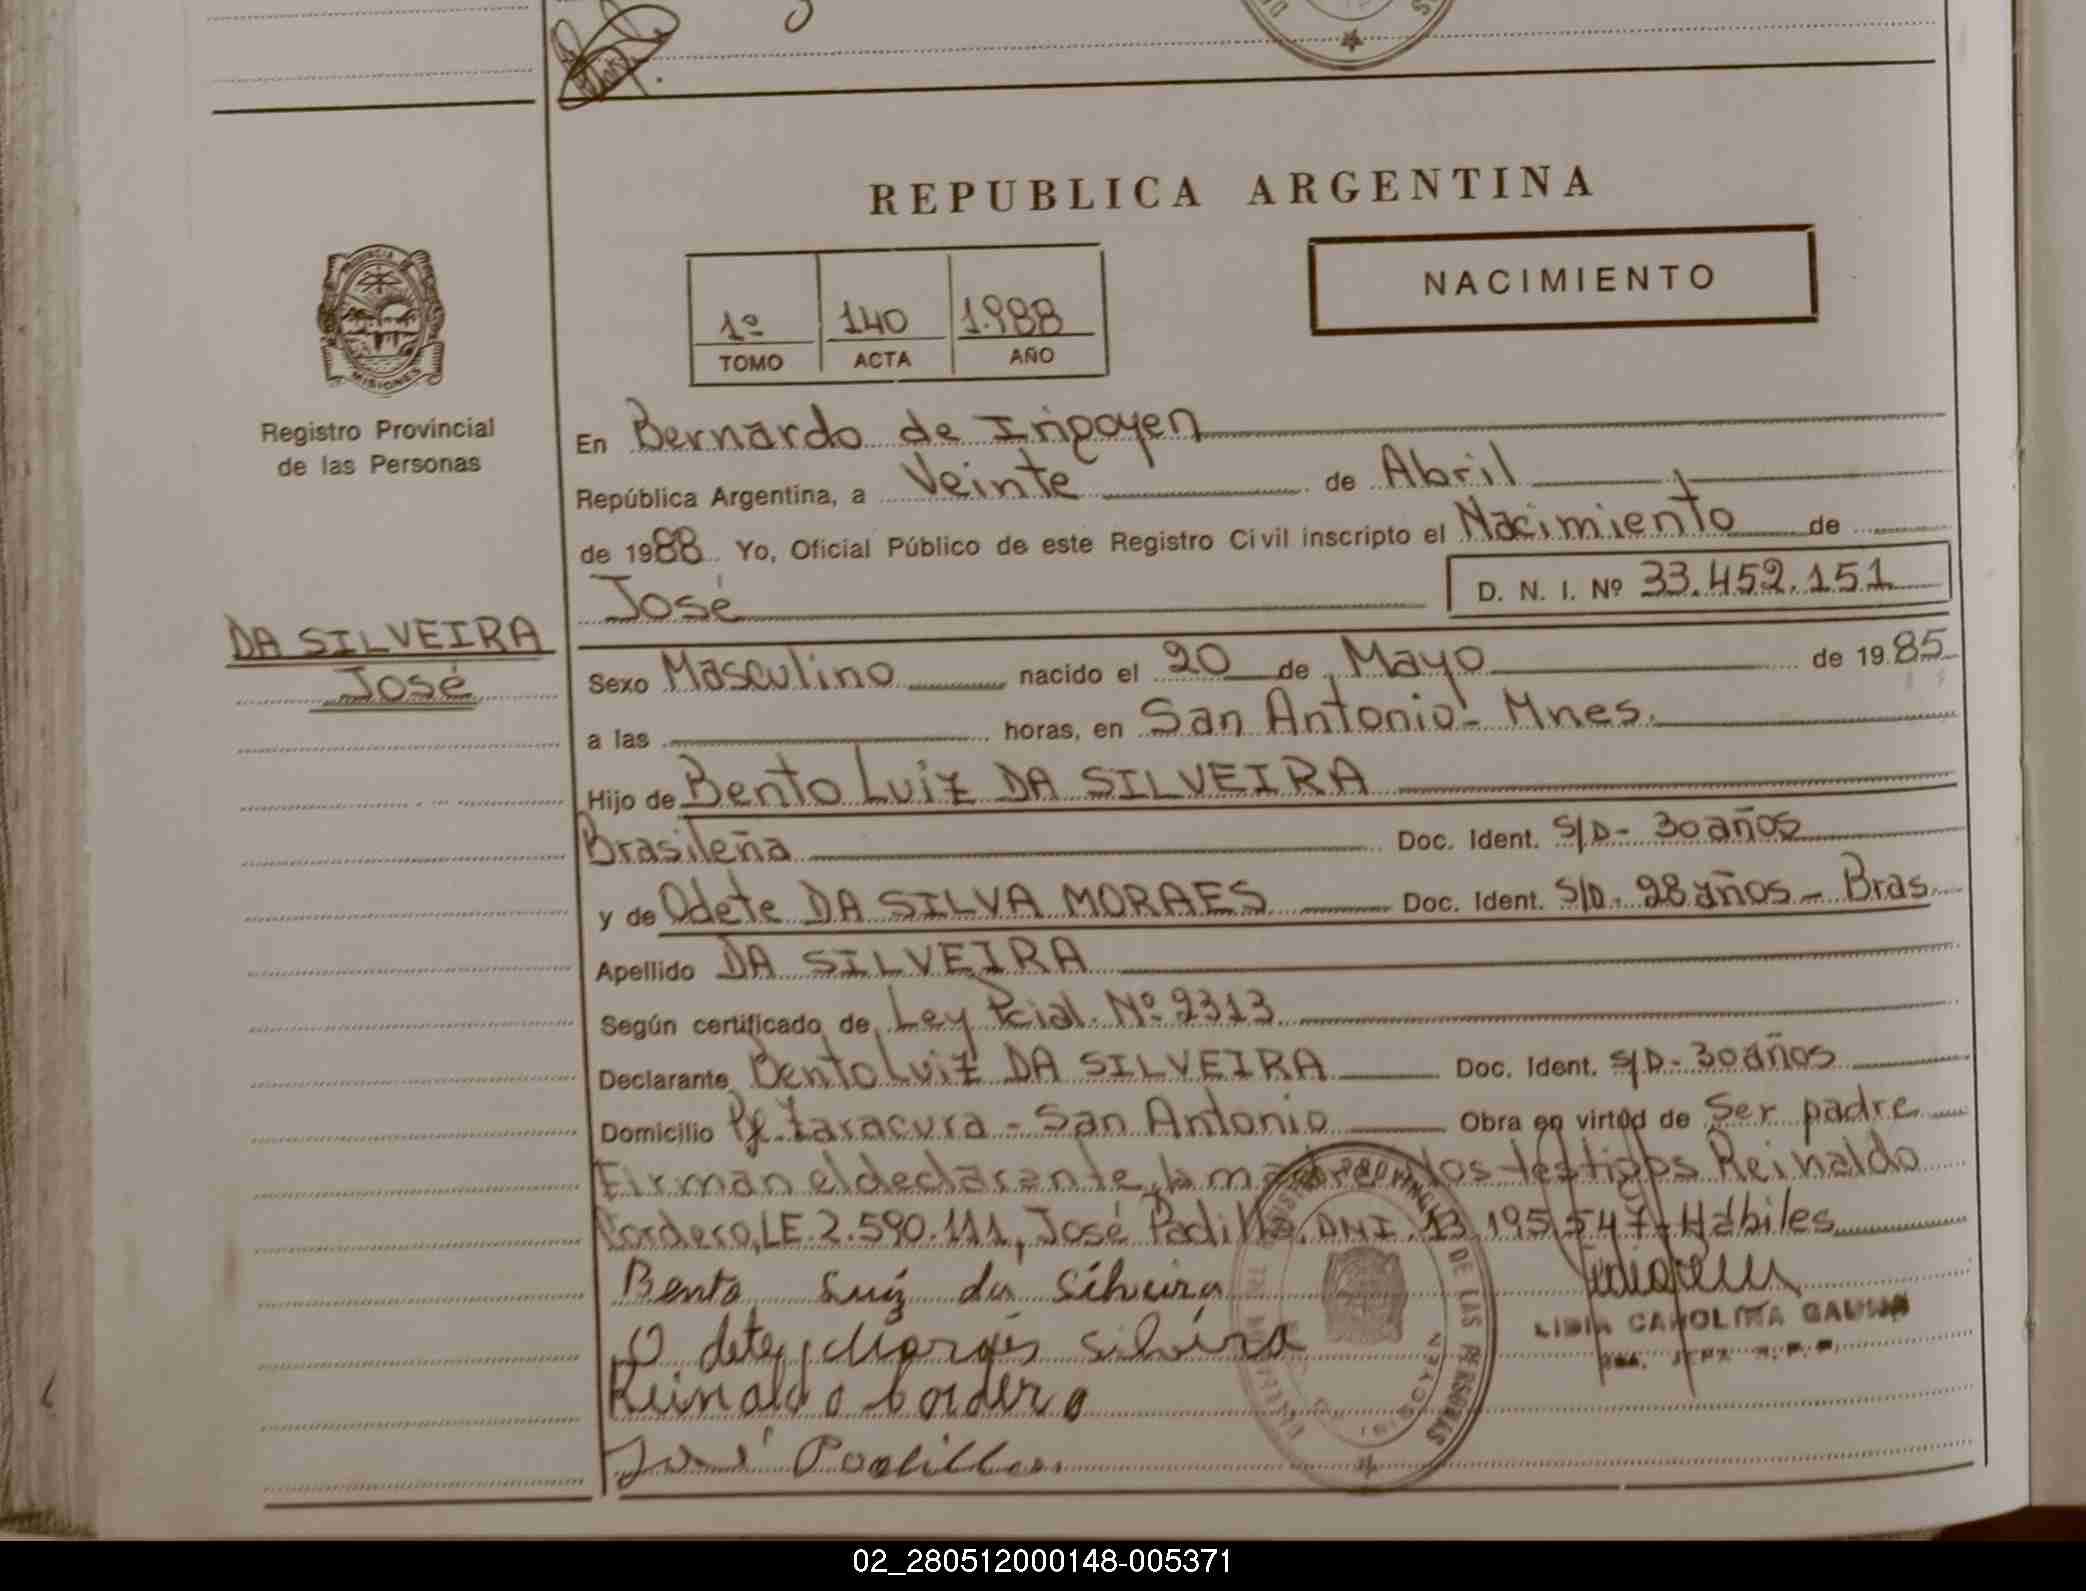 REPUBLICA ARGENTINA
NACIMIENTO
1º 140 1.988
TOMO ACTA AÑO
PROVINCIA DE
MISIONES
Registro Provincial
de las Personas
En Bernardo de Irigoyen
República Argentina, a Veinte de Abril
de 1988 Yo, Oficial Público de este Registro Civil inscripto el Nacimiento de
José D. N. I. Nº 33.452.151
DA SILVEIRA
José
Sexo Masculino nacido el 20 de Mayo de 1985
a las horas, en San Antonio - Mnes.
Hijo de Bento Luiz DA SILVEIRA
Brasileña Doc. Ident. S/D - 30 años
y de Odete DA SILVA MORAES Doc. Ident. S/D - 28 años - Bras.
Apellido DA SILVEIRA
Según certificado de Ley Pcial. Nº 2313
Declarante Bento Luiz DA SILVEIRA Doc. Ident. S/D - 30 años
Domicilio Pje. Taracura - San Antonio Obra en virtud de Ser padre
Firman el declarante, la madre los testigos Reinaldo
Cordero, LE. 2.590.111, José Padilla, DNI. 13.195.547 - Hábiles
Bento Luiz da Silveira
Odete Moraes Silveira
LIDIA CAROLINA
Reinaldo Cordero
José Padilla
02_280512000148-005371